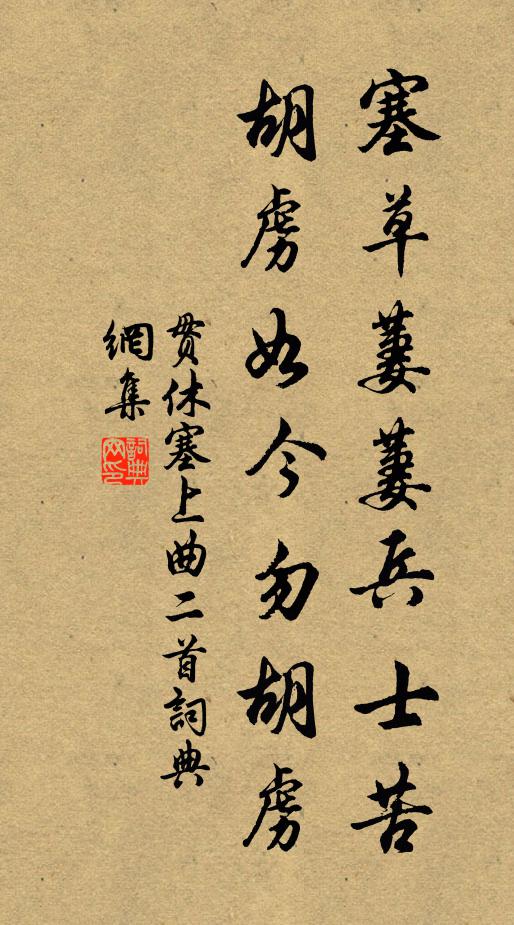 塞草萋萋兵士苦
胡虜如今勿胡虜
貫休塞上曲二首詞典
網集
詞典
网印